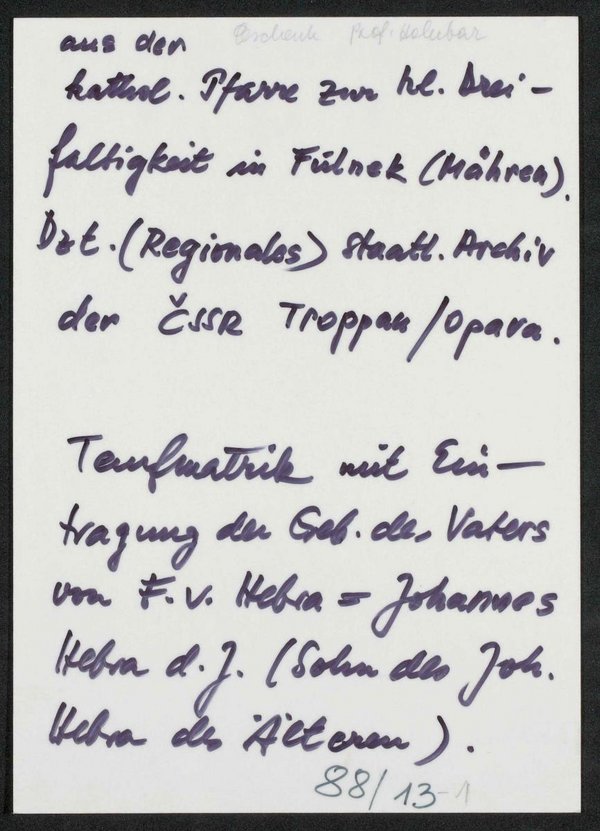 Geschenk Prof. Holubar
aus der
kathol. Pfarre zur hl. Drei-
faltigkeit in Fulnek (Mähren).
Dzt. (Regionales) Staatl. Archiv
der ČSSR Troppau/Opava.
Taufmatrik mit Ein-
tragung der Geb. des Vaters
von F. v. Hebra = Johannes
Hebra d. J. (Sohn des Joh.
Hebra des Älteren).
88/13-1